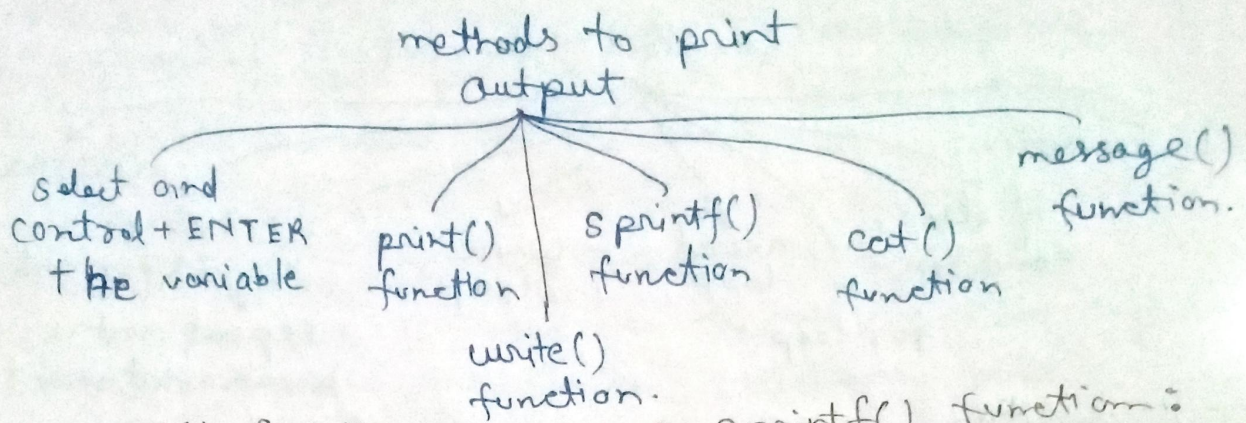 methods to print
output
select and
control + ENTER
the variable
print()
function
write()
function.
sprintf()
function
cat()
function
message()
function.
function: